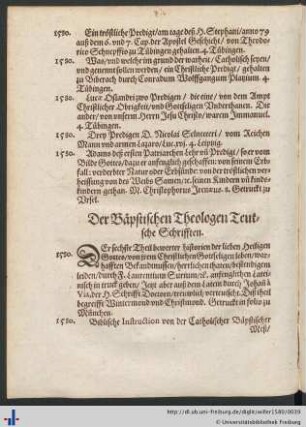 1580. Ein tröstliche Predigt/ am tage deß H. Stephani/ anno 79
auß dem 6. vnd 7. Cap. der Apostel Geschicht/ von Theodo-
rico Schnepffio zu Tübingen gehalten. 4. Tübingen.
1580. Was/ vnd welche im grund der warheit/ Catholisch seyen/
vnd genennt sollen werden/ ein Christliche Predig/ gehalten
zu Biberach durch Conradum Wolffgangum Platzium 4.
Tübingen.
1580. Lucæ Osiandri zwo Predigen / die eine/ von dem Ampt
Christlicher Obrigkeit/ vnd Gottseligen Vnderthanen. Die
ander/ von vnserm Herrn Jesu Christo/ warem Immanuel.
4. Tübingen.
1580. Drey Predigen D. Nicolai Selnecceri / vom Reichen
Mann vnd armen Lazaro/ Luc. xvj. 4. Leipzig.
1580. Adams deß ersten Patriarchen Lehr vñ Predig/ so er vom
Bilde Gottes/ dazu er anfenglich geschaffen: von seinem Erb-
fall: verderbter Natur oder Erbsünde: von der tröstlichen ver-
heissung von des Weibs Samen/ seinen Kindern vñ kinds-
kindern gethan. M. Christophorus Irenæus. 8. Getruckt zu
Vrsel.
Der Bäpstischen Theologen Teut-
sche Schrifften.
1580. DEr sechste Theil bewerter historien der lieben Heiligen
Gottes/ von jrem Christlichen Gottseligen leben/ war-
hafften Bekandtnussen/ herrlichen thaten/ bestendigem
leiden/ durch F. Laurentium Surium/ anfenglichen Latei-
nisch in truck geben/ Jetzt aber auß dem Latein durch Johañ à
Via, der H. Schrifft Doctorn/ trewlich verteutscht. Diß theil
begreifft Wintermond vnd Christmond. Getruckt in folio zu
München.
1580. Bäbische Instruction von der Catholischer Bäpstischer
Meß/
http://dl.ub.uni-freiburg.de/diglit/willer1580/0039
© Universitätsbibliothek Freiburg